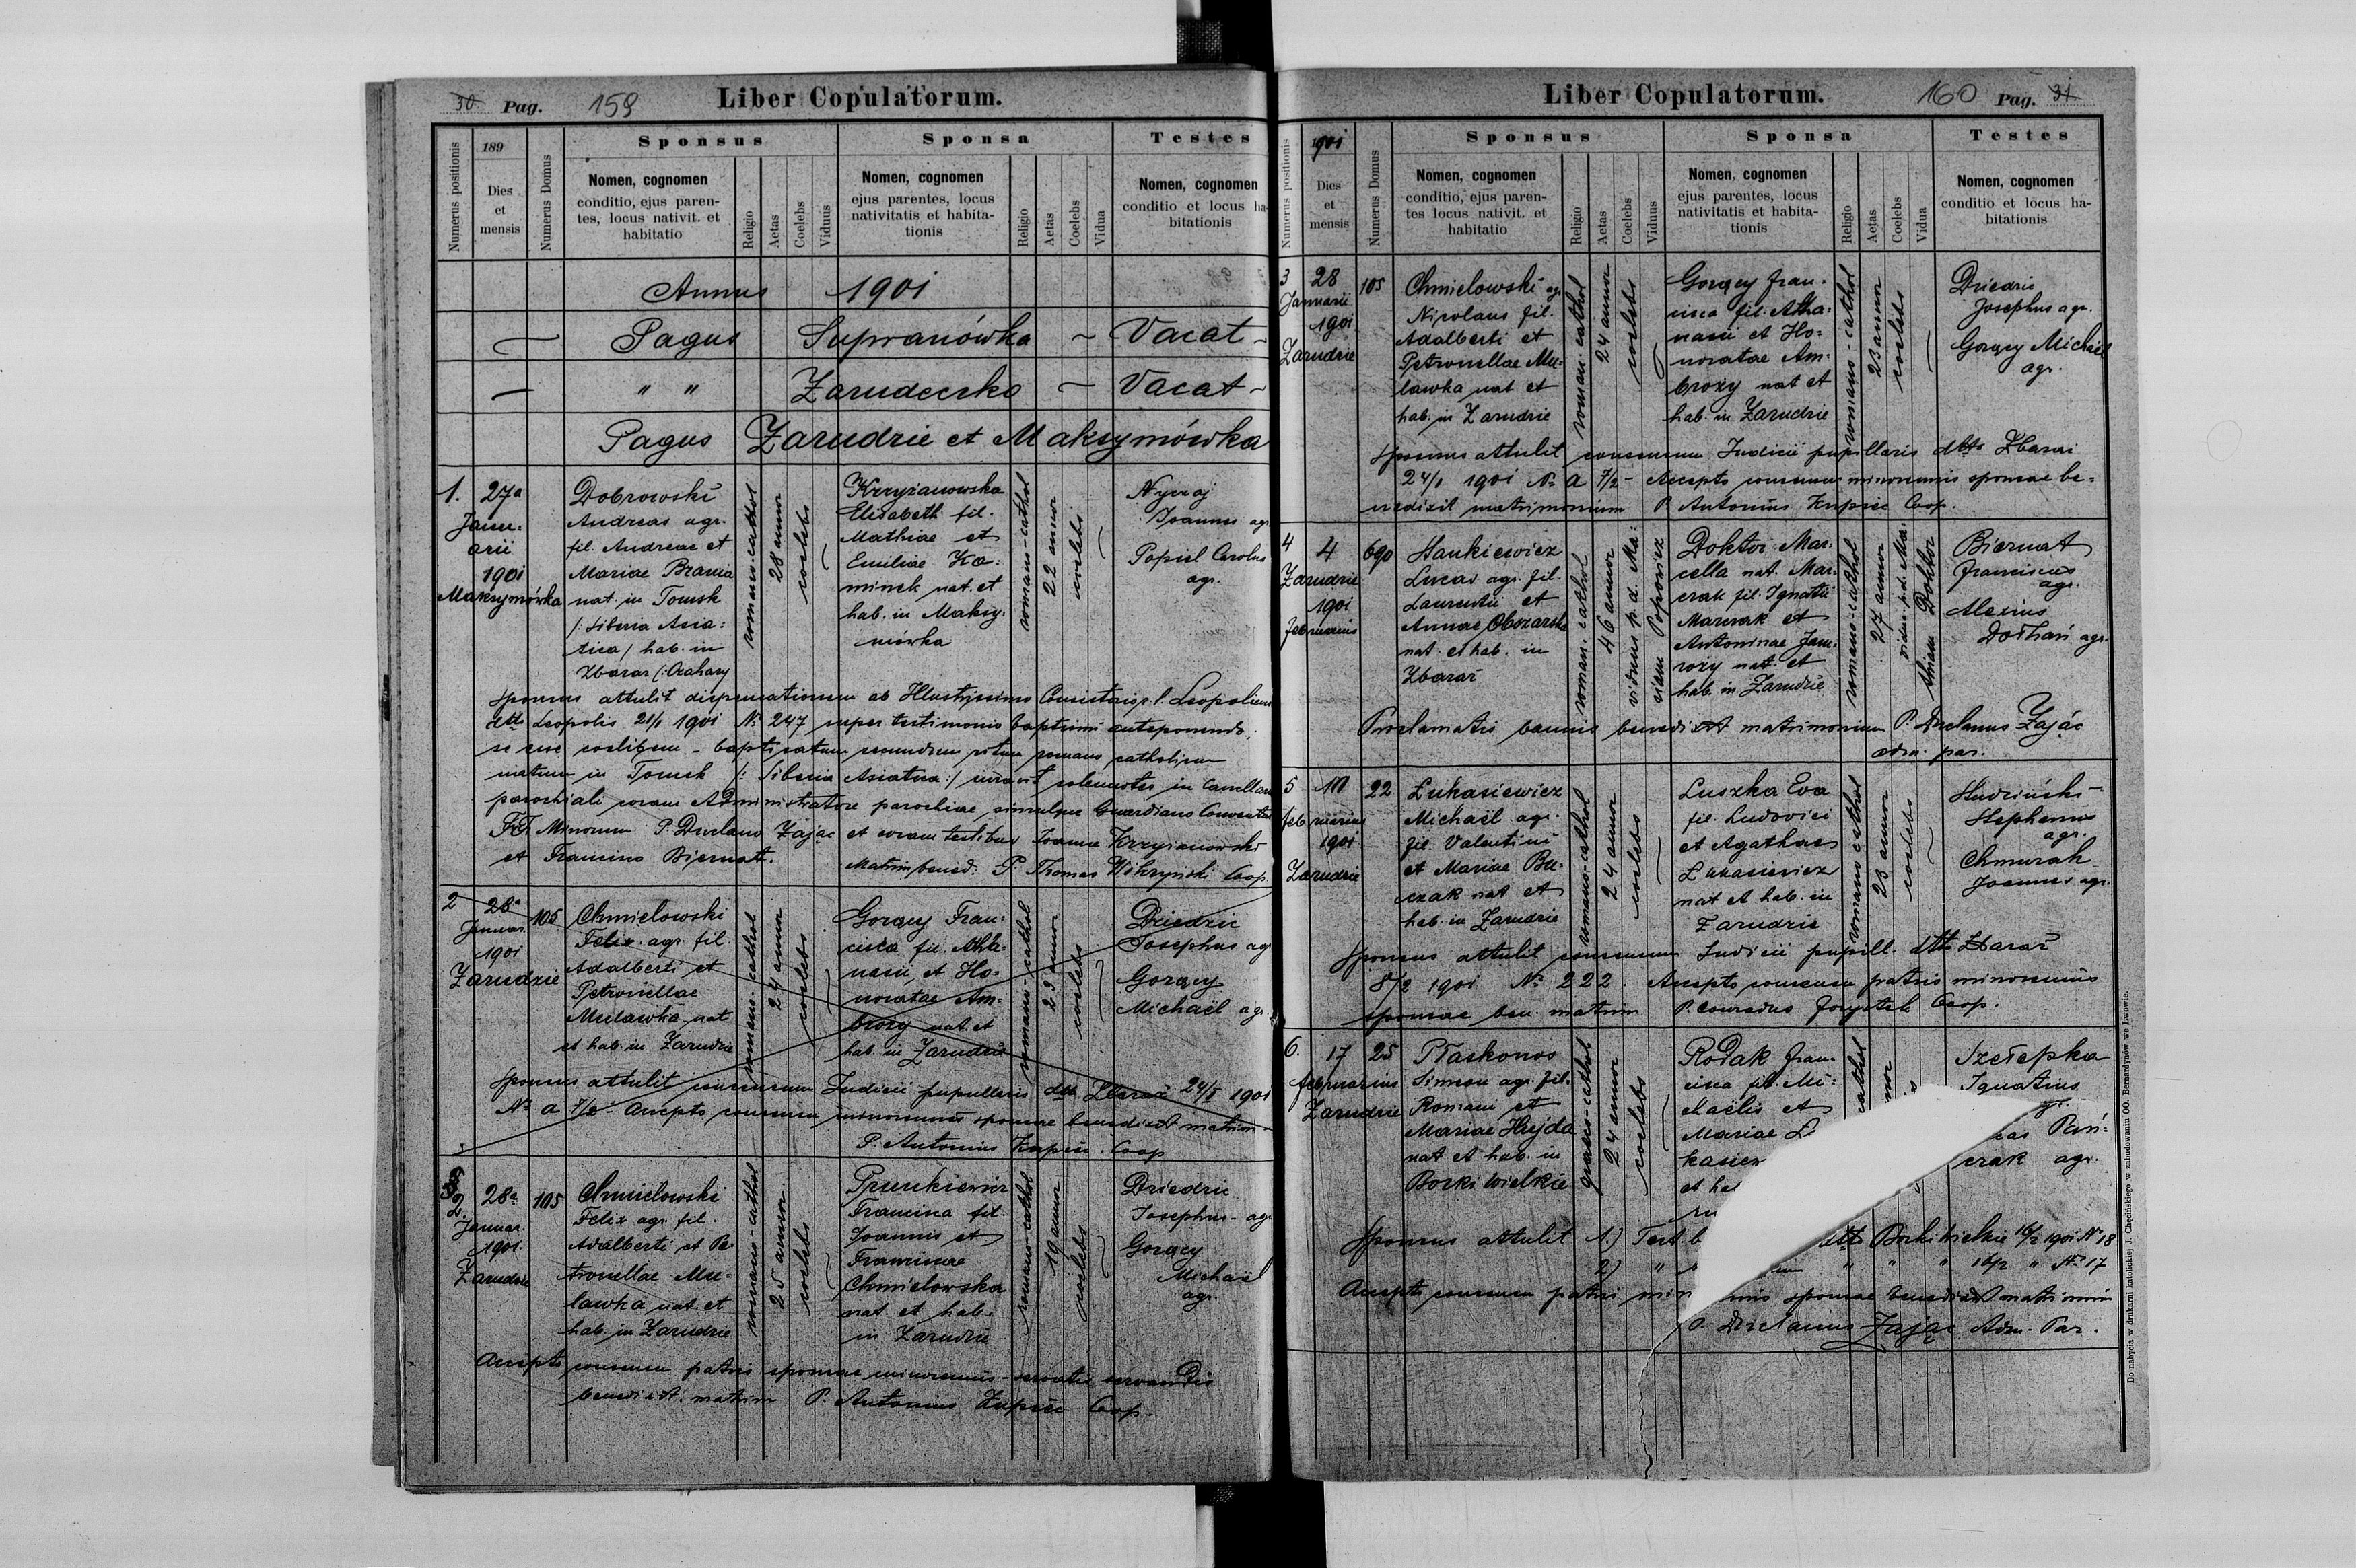 30 Pag. 159 Liber Copulatorum.
Numerus positionis
189
Dies
et
mensis
Numerus Domus
Sponsus
Nomen, cognomen
conditio, ejus paren-
tes, locus nativit. et
habitatio
Religio
Aetas
Coelebs
Viduus
Sponsa
Nomen, cognomen
ejus parentes, locus
nativitatis et habita-
tionis
Religio
Aetas
Coelebs
Vidua
Testes
Nomen, cognomen
conditio et locus ha-
bitationis
Annus 1901
Pagus Supranówka ~ Vacat -
" " Zarudeczko ~ Vacat -
Pagus Zarudzie et Maksymówka
1. 27a
Janu-
arii
1901
Maksymówka
Dobrowolski
Andreas agr.
fil. Andreae et
Mariae Brania
nat. in Tomsk
/: Siberia Asia-
tica / hab. in
Zbaraz /: Czahary
romano-cathol
28 annor
coelebs
Krzyżanowska
Elisabeth fil.
Mathiae et
Emiliae Ka-
minsk nat. et
hab. in Maksy-
mówka
romano-cathol
22 annor
coelebs
Joannes agr.
Popiel Carolus
agr.
Sponsus attulit dispensationem ab Illustrissimo Consistorio r. l. Leopoliensi
dtto Leopolis 21/1 1901 No 247 super testimonio baptismi anteponendo.
se esse coelibem - baptisatum secundum ritum romano catholicum
natum in Tomsk /: Siberia Asiatica :/ iuravit solemniter in Cancellaria
parochiali coram Administratore parochiae, simulque Guardiano Conventus
FF. Minorum P. Duclano Zając et coram testibus Joanne Krzyżanowski
et Francisco Biernat. Matrim. bened. P. Thomas Wikrzyński Coop.
2 28a
Januar.
1901
Zarudzie
105
Chmielowski
Felix agr. fil.
Adalberti et
Petronellae
Mulawka nat
et hab. in Zarudzie
romano-cathol
24 annor
coelebs
Gorący Fran-
cisca fil. Atha-
nasii et Ho-
noratae Am-
broży nat. et
hab. in Zarudzie
romano-cathol
23 annor
coelebs
Dziedzic
Josephus agr
Gorący
Michaël agr.
Sponsus attulit consensum Judicii pupillaris dtto Zbaraż 24/I 1901
No a 7/2 - Accepto consensu minorennis sponsae benedixit matrim
P. Antonius Kupiec Coop
2. 28a
Januar.
1901.
Zarudzie
105
Chmielowski
Felix agr. fil.
Adalberti et Pe-
tronellae Mu-
lawka nat. et
hab. in Zarudzie
romano-cathol
25 annor.
coelebs
Francisca fil.
Joannis et
Franciscae
Chmielowska
nat. et hab.
in Zarudzie
romano-cathol
19 annor
coelebs
Dziedzic
Josephus - agr
Gorący
Michaël
agr.
Accepto consensu patris sponsae minorennis - servatis servandis
benedixit. matrim P. Antonius Kupiec Coop.
Liber Copulatorum. 160 Pag. 31
Numerus positionis
1901
Dies
et
mensis
Numerus Domus
Sponsus
Nomen, cognomen
conditio, ejus paren-
tes locus nativit. et
habitatio
Religio
Aetas
Coelebs
Viduus
Sponsa
Nomen, cognomen
ejus parentes, locus
nativitatis et habita-
tionis
Religio
Aetas
Coelebs
Vidua
Testes
Nomen, cognomen
conditio et locus ha-
bitationis
3 28
Januarii
1901
Zarudzie
105
Chmielowski agr
Nicolaus fil.
Adalberti et
Petronellae Mu-
lawka nat et
hab. in Zarudzie
roman. cathol
24 annor
coelebs
Gorący Fran-
cisca fil. Atha-
nasii et Ho-
noratae Am-
broży nat et
hab. in Zarudzie
romano-cathol
23 annor
coelebs
Dziedzic
Josephus agr.
Gorący Michaël
agr.
Sponsus attulit consensum Judicii pupillaris dtto Zbaraż
24/1 1901 No a 7/2 - Accepto consensu minorennis sponsae be-
nedixit matrimonium P. Antonius Kupiec Coop.
4 4
Zarudzie
1901
Februarius
690
Stankiewicz
Lucas agr. fil.
Laurentii et
Annae Obszarska
nat. et hab. in
Zbaraż
roman. cathol
46 annor
viduus p. d. Ma-
riam Popowicz
Doktor Mar-
cella nat. Mar-
czak fil. Ignatii
Marczak et
Antoninae Jam-
roży nat. et
hab. in Zarudzie
romano-cathol
27 annor
vidua p. d. Ma-
thiam Doktor
Biernat
Franciscus
agr.
Alexius
Dołhań agr.
Proclamatis bannis benedixit matrimonium P. Duclanus Zając
adm. par.
5
Februarius
1901
Zarudzie
22
Łukasiewicz
Michaël agr.
fil. Valentini
et Mariae Bu-
czak nat et
hab. in Zarudzie
romano-cathol
24 annor
coelebs
Luszka Eva
fil. Ludovici
et Agathae
Łukasiewicz
nat et hab. in
Zarudzie
romano cathol
23 annor
coelebs
Studziński
Stephanus
agr.
Chmurak
Joannes agr.
Sponsus attulit consensum Judicii pupill. dtto Zbaraż
8/2 1901 No 222. Accepto consensu patris minorennis
sponsae ben. matrim P. Conradus Forystek Coop.
6. 17
Februarius
Zarudzie
25
Płaskonos
Simeon agr. fil.
Romani et
Mariae Hujda
nat et hab. in
Borki wielkie
graeco-cathol
24 annor
coelebs
Rodak Fran-
cisca fil. Mi-
chaëlis et
Mariae
kasiew
et ha
cathol
Szczepka
Ignatius
Pań-
czak agr.
Sponsus attulit 1.) Test. b dtto Borki Wielkie 16/2 1901 No 18
2) " " " 16/2 " No 17
Accepto consensu patris min nis sponsae benedixit matrimon
P. Duclanus Zając Adm. Par.
Do nabycia w drukarni katolickiej J. Chęcińskiego w zabudowaniu OO. Bernardynów we Lwowie.